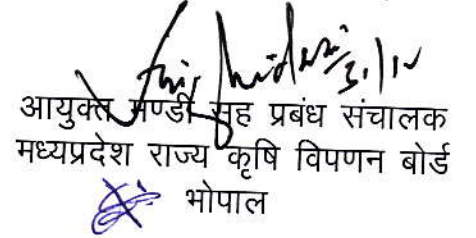 31/12
आयुक्त मण्डी सह प्रबंध संचालक
मध्यप्रदेश राज्य कृषि विपणन बोर्ड
भोपाल